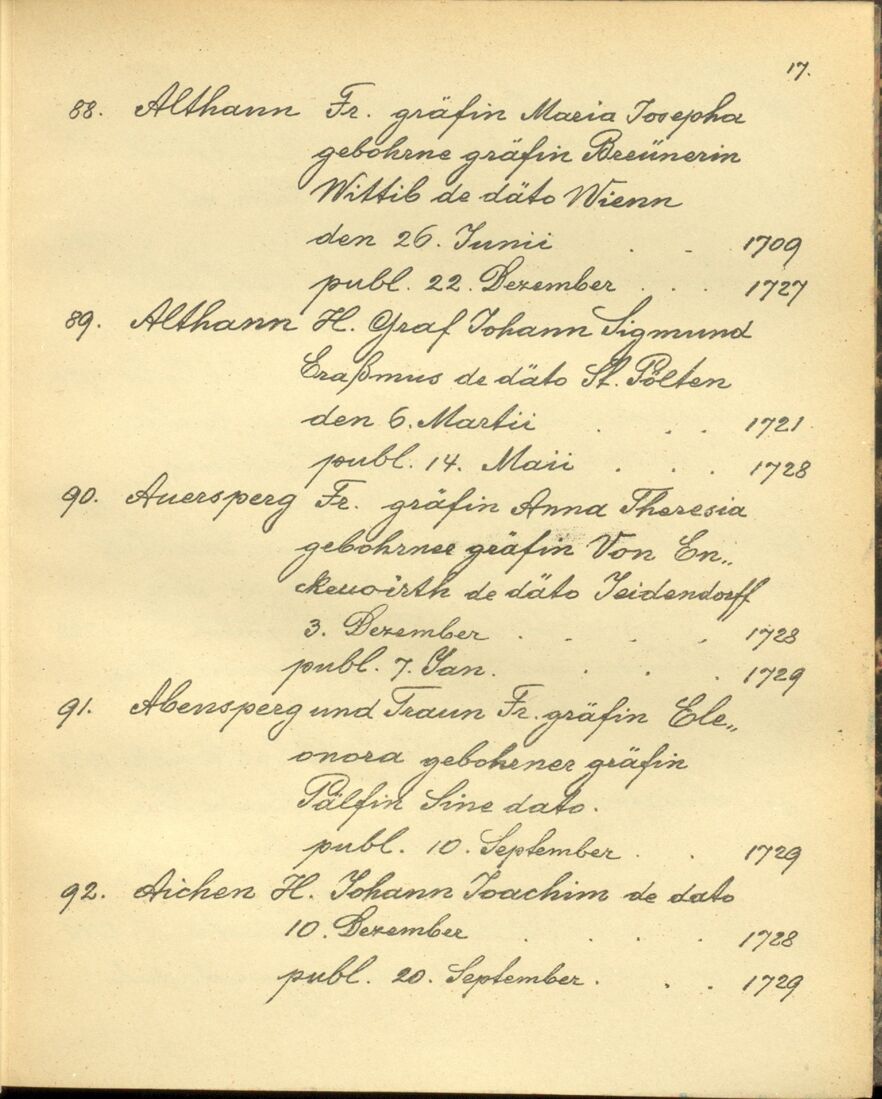 17.
88. Althann Fr. gräfin Maria Josepha
gebohrne gräfin Breünerin
Wittib de däto Wienn
den 26. Junii . . 1709
publ. 22. Dezember . . . 1727
89. Althann H. Graf Johann Sigmund
Eraßmus de däto St. Pölten
den 6. Martii . . . 1721
publ. 14. Maii . . . 1728
90. Auersperg Fr. gräfin Anna Theresia
gebohrner gräfin Von En„
ckevoirth de däto Seidendorff
3. Dezember . . . . 1728
publ. 7. Jan. . . . 1729
91. Abensperg und Traun Fr. gräfin Ele„
onora gebohrner gräfin
Pälfin Sine dato.
publ. 10. September . . 1729
92. Aichen H. Johann Joachim de dato
10. Dezember . . . . 1728
publ. 20. September . . . 1729